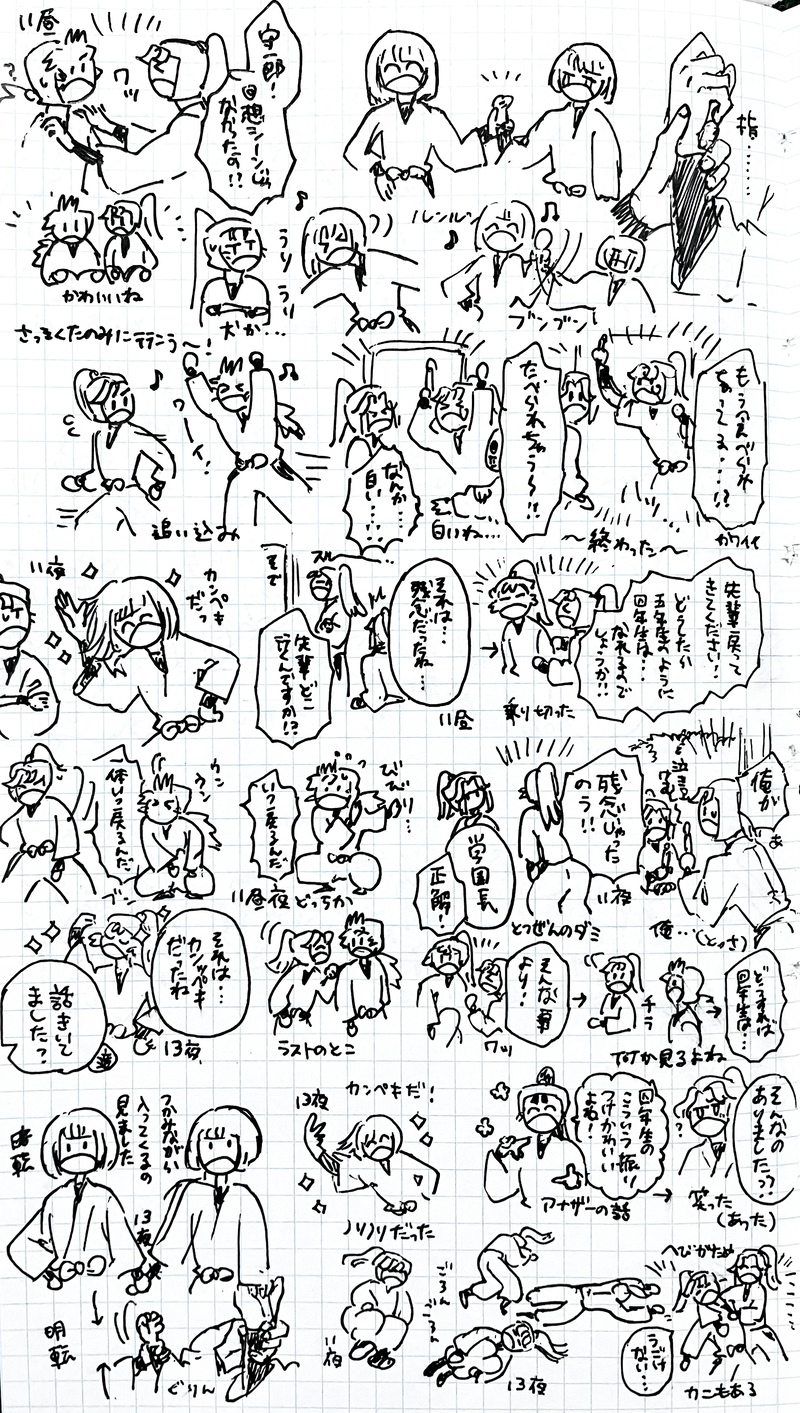 11昼
ワッ
守一郎!
回想シーンじゃ
なかったの!?
指……
かわいいね
うり うり
犬か…
ルンルン
ブンブン
さっそくたのみに行こう〜!
ワーイ!
追い込み
なんか…
白い……
白いね…
たべられちゃう〜!!
もう食べられ
ちゃってる…!?
〜終わった〜
カワイイ
11夜
カンペキ
だっ
そで
スル
先輩どこ
行くんですか!?
それは…
残念だったね…
11昼
先輩戻って
きてください!
どうしたら
五年生のように
なれるので
しょうか!!
乗り切った
一体いつ戻るんだ
ウン
ウン
いつ戻るんだ
びびり…
11昼夜どっちか
学園長
正解!
残念じゃった
のう!!
11夜
とつぜんのダミ
俺が
俺…(とっさ)
話きいて
ました?
それは…
カンッペキ
だったね
13夜
ラストのとこ
そんな事
より!
ワッ
チラ
なんか見るよね
どうすれば
四年生は…
暗転
つかみながら
入ってくるの
見ました
13夜
明転
ぐりん
カンペキだ!
13夜
ノリノリだった
11夜
ごろん
ごろん
四年生の
こういう振り
つけかわいい
よね!
アナザーの話
そんなの
ありましたっ?
笑った
(あった)
13夜
へびがため
うごけ
ない…
カニもある